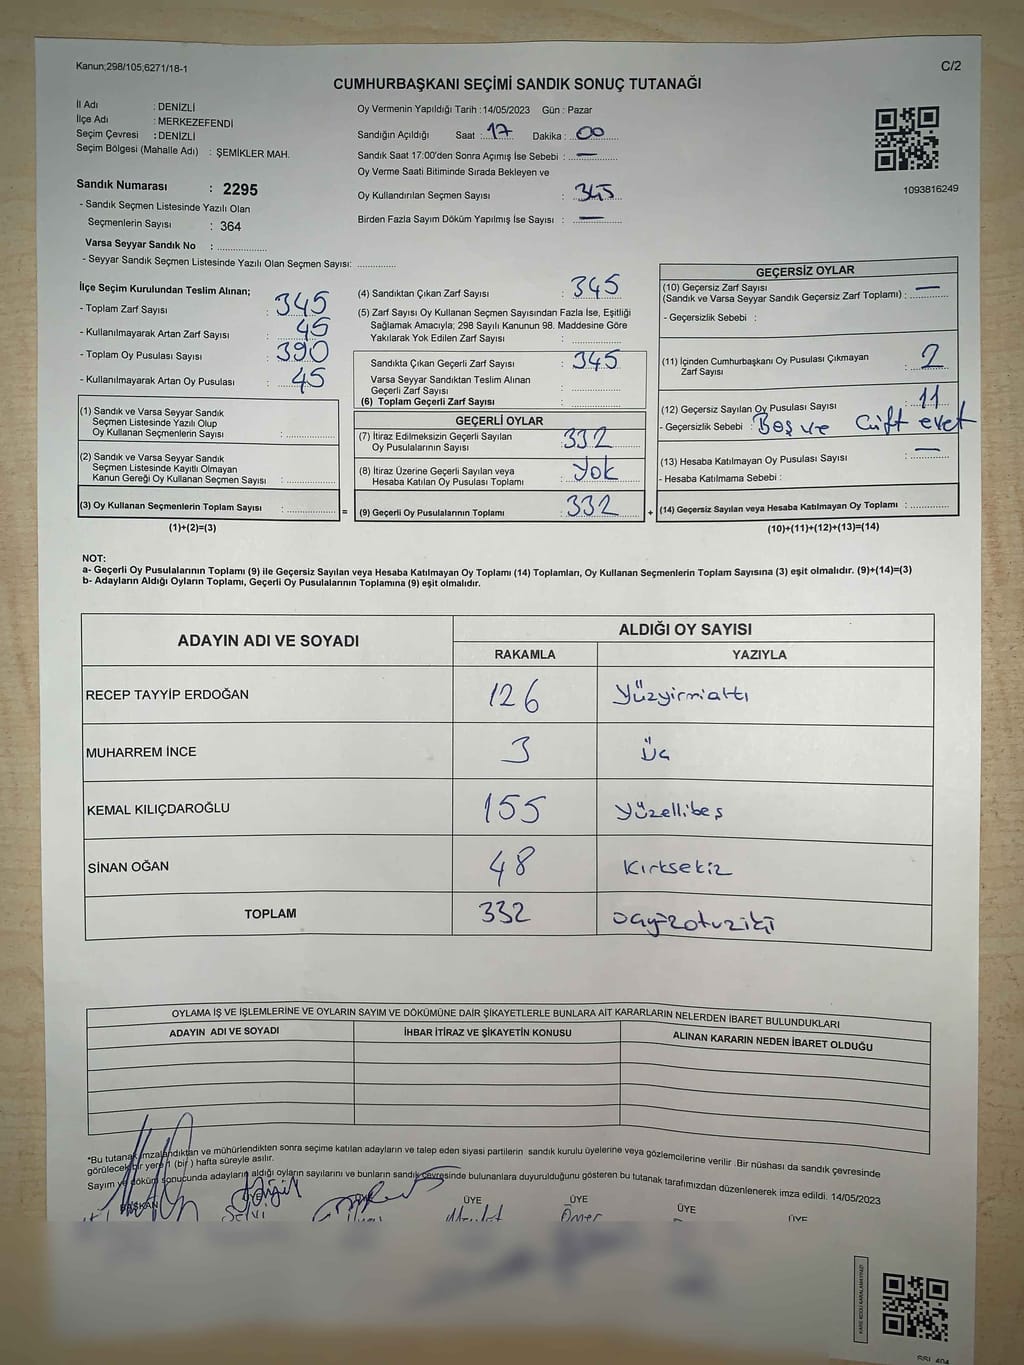 Kanun;298/105,6271/18-1
C/2
CUMHURBAŞKANI SEÇİMİ SANDIK SONUÇ TUTANAĞI
İl Adı : DENİZLİ
İlçe Adı : MERKEZEFENDİ
Seçim Çevresi : DENİZLİ
Seçim Bölgesi (Mahalle Adı) : ŞEMİKLER MAH.
Sandık Numarası : 2295
- Sandık Seçmen Listesinde Yazılı Olan
Seçmenlerin Sayısı : 364
Varsa Seyyar Sandık No : ..............
- Seyyar Sandık Seçmen Listesinde Yazılı Olan Seçmen Sayısı: ............
Oy Vermenin Yapıldığı Tarih : 14/05/2023 Gün : Pazar
Sandığın Açıldığı Saat : 17 Dakika : 00
Sandık Saat 17:00'den Sonra Açımış İse Sebebi : —
Oy Verme Saati Bitiminde Sırada Bekleyen ve
Oy Kullandırılan Seçmen Sayısı : 345
Birden Fazla Sayım Döküm Yapılmış İse Sayısı : —
1093816249
İlçe Seçim Kurulundan Teslim Alınan;
- Toplam Zarf Sayısı : 345
- Kullanılmayarak Artan Zarf Sayısı : 45
- Toplam Oy Pusulası Sayısı : 390
- Kullanılmayarak Artan Oy Pusulası : 45
(1) Sandık ve Varsa Seyyar Sandık
Seçmen Listesinde Yazılı Olup
Oy Kullanan Seçmenlerin Sayısı : ............
(2) Sandık ve Varsa Seyyar Sandık
Seçmen Listesinde Kayıtlı Olmayan
Kanun Gereği Oy Kullanan Seçmen Sayısı : ............
(3) Oy Kullanan Seçmenlerin Toplam Sayısı : ............ =
(1)+(2)=(3)
(4) Sandıktan Çıkan Zarf Sayısı : 345
(5) Zarf Sayısı Oy Kullanan Seçmen Sayısından Fazla İse, Eşitliği
Sağlamak Amacıyla; 298 Sayılı Kanunun 98. Maddesine Göre
Yakılarak Yok Edilen Zarf Sayısı : ............
Sandıkta Çıkan Geçerli Zarf Sayısı : 345
Varsa Seyyar Sandıktan Teslim Alınan
Geçerli Zarf Sayısı : ............
(6) Toplam Geçerli Zarf Sayısı : ............
GEÇERLİ OYLAR
(7) İtiraz Edilmeksizin Geçerli Sayılan
Oy Pusulalarının Sayısı : 332
(8) İtiraz Üzerine Geçerli Sayılan veya
Hesaba Katılan Oy Pusulası Toplamı : Yok
(9) Geçerli Oy Pusulalarının Toplamı : 332 +
GEÇERSİZ OYLAR
(10) Geçersiz Zarf Sayısı
(Sandık ve Varsa Seyyar Sandık Geçersiz Zarf Toplamı) : —
- Geçersizlik Sebebi :
(11) İçinden Cumhurbaşkanı Oy Pusulası Çıkmayan
Zarf Sayısı : 2
(12) Geçersiz Sayılan Oy Pusulası Sayısı : 11
- Geçersizlik Sebebi : Boş ve Çift evet
(13) Hesaba Katılmayan Oy Pusulası Sayısı : —
- Hesaba Katılmama Sebebi :
(14) Geçersiz Sayılan veya Hesaba Katılmayan Oy Toplamı : ............
(10)+(11)+(12)+(13)=(14)
NOT:
a- Geçerli Oy Pusulalarının Toplamı (9) ile Geçersiz Sayılan veya Hesaba Katılmayan Oy Toplamı (14) Toplamları, Oy Kullanan Seçmenlerin Toplam Sayısına (3) eşit olmalıdır. (9)+(14)=(3)
b- Adayların Aldığı Oyların Toplamı, Geçerli Oy Pusulalarının Toplamına (9) eşit olmalıdır.
ADAYIN ADI VE SOYADI
ALDIĞI OY SAYISI
RAKAMLA YAZIYLA
RECEP TAYYİP ERDOĞAN 126 Yüzyirmialtı
MUHARREM İNCE 3 Üç
KEMAL KILIÇDAROĞLU 155 Yüzellibeş
SİNAN OĞAN 48 Kırksekiz
TOPLAM 332 üçyüzotuziki
OYLAMA İŞ VE İŞLEMLERİNE VE OYLARIN SAYIM VE DÖKÜMÜNE DAİR ŞİKAYETLERLE BUNLARA AİT KARARLARIN NELERDEN İBARET BULUNDUKLARI
ADAYIN ADI VE SOYADI İHBAR İTİRAZ VE ŞİKAYETİN KONUSU ALINAN KARARIN NEDEN İBARET OLDUĞU
*Bu tutanak imzalandıktan ve mühürlendikten sonra seçime katılan adayların ve talep eden siyasi partilerin sandık kurulu üyelerine veya gözlemcilerine verilir .Bir nüshası da sandık çevresinde
görülecek bir yere 1 (bir ) hafta süreyle asılır.
Sayım ve döküm sonucunda adayların aldığı oyların sayılarını ve bunların sandık çevresinde bulunanlara duyurulduğunu gösteren bu tutanak tarafımızdan düzenlenerek imza edildi. 14/05/2023
BAŞKAN ÜYE ÜYE ÜYE ÜYE ÜYE
Selvi Ömer